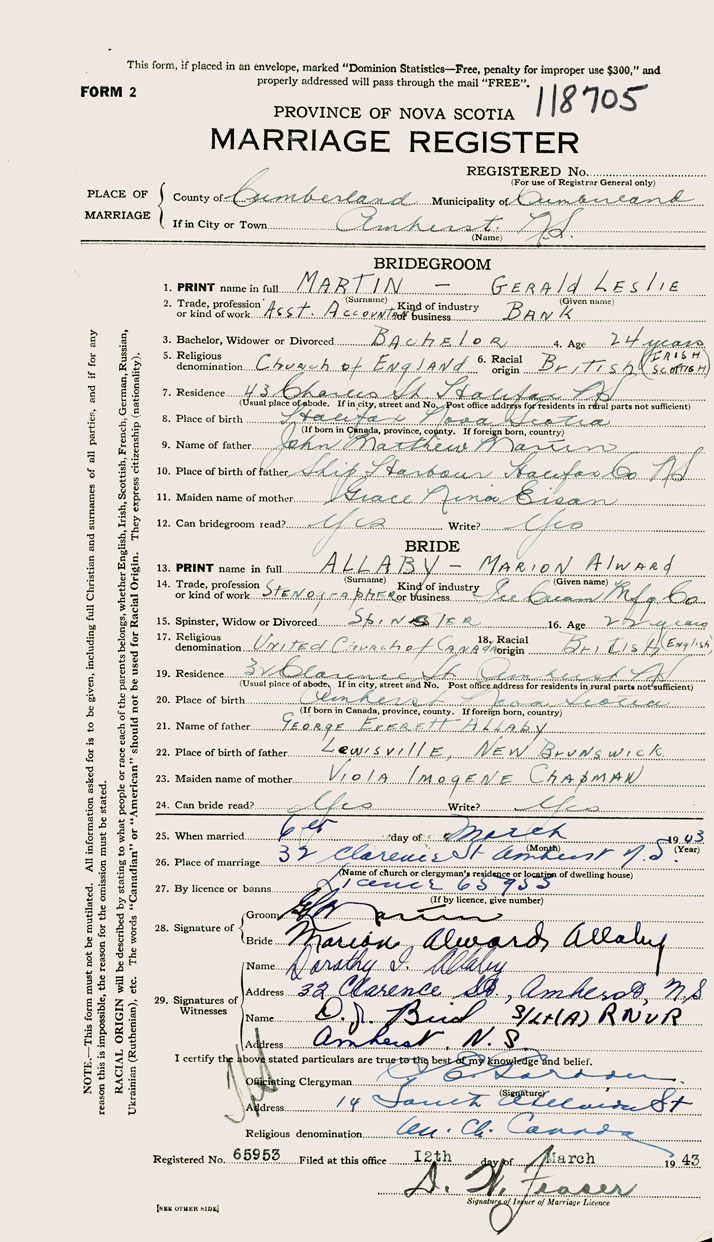 This form, if placed in an envelope, marked "Dominion Statistics—Free, penalty for improper use $300," and
properly addressed will pass through the mail "FREE".
FORM 2
118705
PROVINCE OF NOVA SCOTIA
MARRIAGE REGISTER
REGISTERED No.
(For use of Registrar General only)
PLACE OF MARRIAGE
County of Cumberland Municipality of Cumberland
If in City or Town Amherst. N.S.
(Name)
BRIDEGROOM
1. PRINT name in full MARTIN — GERALD LESLIE
(Surname) (Given name)
2. Trade, profession or kind of work Asst. Accountant Kind of industry or business BANK
3. Bachelor, Widower or Divorced BACHELOR 4. Age 24 years
5. Religious denomination Church of England 6. Racial origin British (IRISH SCOTTISH)
7. Residence 43 Charles St Halifax NS
(Usual place of abode. If in city, street and No. Post office address for residents in rural parts not sufficient)
8. Place of birth Halifax Nova Scotia
(If born in Canada, province, county. If foreign born, country)
9. Name of father John Matthew Martin
10. Place of birth of father Ship Harbour Halifax Co NS
11. Maiden name of mother Grace Nina Eisan
12. Can bridegroom read? Yes Write? Yes
BRIDE
13. PRINT name in full ALLABY — MARION ALWARD
(Surname) (Given name)
14. Trade, profession or kind of work STENOGRAPHER Kind of industry or business Ice Cream Mfg Co
15. Spinster, Widow or Divorced SPINSTER 16. Age 22 years
17. Religious denomination UNITED Church of CANADA 18. Racial origin BRITISH (English)
19. Residence 32 Clarence St Amherst NS
(Usual place of abode. If in city, street and No. Post office address for residents in rural parts not sufficient)
20. Place of birth Amherst Nova Scotia
(If born in Canada, province, county. If foreign born, country)
21. Name of father GEORGE EVERETT ALLABY
22. Place of birth of father LEWISVILLE, NEW BRUNSWICK
23. Maiden name of mother VIOLA IMOGENE CHAPMAN
24. Can bride read? Yes Write? Yes
25. When married 6th day of March 1943
(Month) (Year)
26. Place of marriage 32 Clarence St Amherst N.S.
(Name of church or clergyman's residence or location of dwelling house)
27. By licence or banns Licence 65953
(If by licence, give number)
28. Signature of
Groom Martin
Bride Marion Alward Allaby
29. Signatures of Witnesses
Name Dorothy I. Allaby
Address 32 Clarence St., Amherst, N.S
Name D. J. Bird S/Lt(A) RNVR
Address Amherst, N.S.
I certify the above stated particulars are true to the best of my knowledge and belief.
Officiating Clergyman
(Signature)
Address 14 South Adelaide St
Religious denomination Un. Ch. Canada
Registered No. 65953 Filed at this office 12th day of March 1943
D. W. Fraser
Signature of Issuer of Marriage Licence
[SEE OTHER SIDE]
NOTE.—This form must not be mutilated. All information asked for is to be given, including full Christian and surnames of all parties, and if for any
reason this is impossible, the reason for the omission must be stated.
RACIAL ORIGIN will be described by stating to what people or race each of the parents belongs, whether English, Irish, Scottish, French, German, Russian,
Ukrainian (Ruthenian), etc. The words "Canadian" or "American" should not be used for Racial Origin. They express citizenship (nationality).